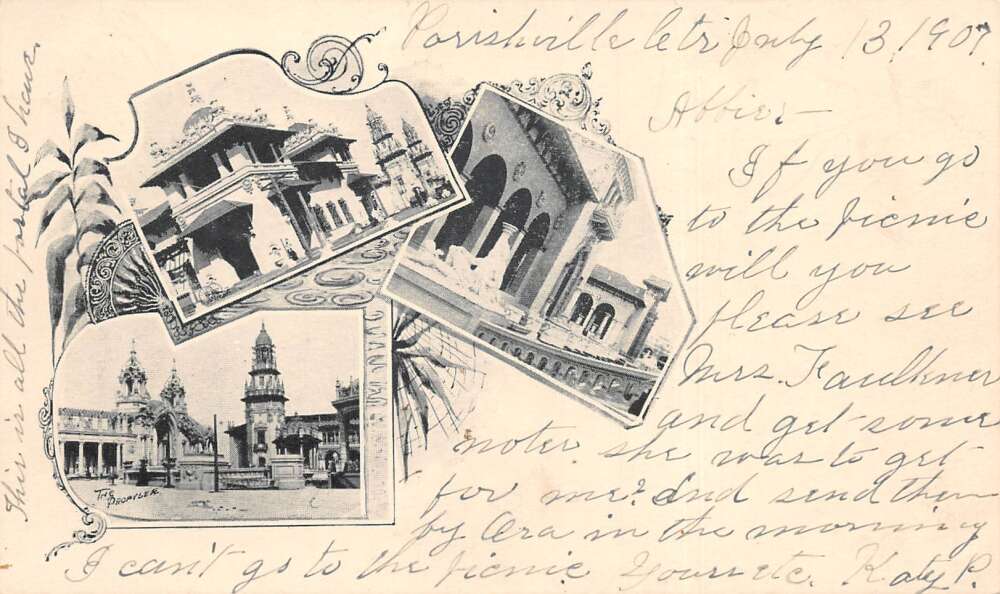 Parishville Cetr July 13, 1907
Abbie:—
If you go
to the picnic
will you
please see
Mrs. Faulkner
and get some
notes she was to get
for me? And send them
by Ora in the morning
I can't go to the picnic Yours etc. Katy P.
This is all the postal I have.
THE PROPYLEA